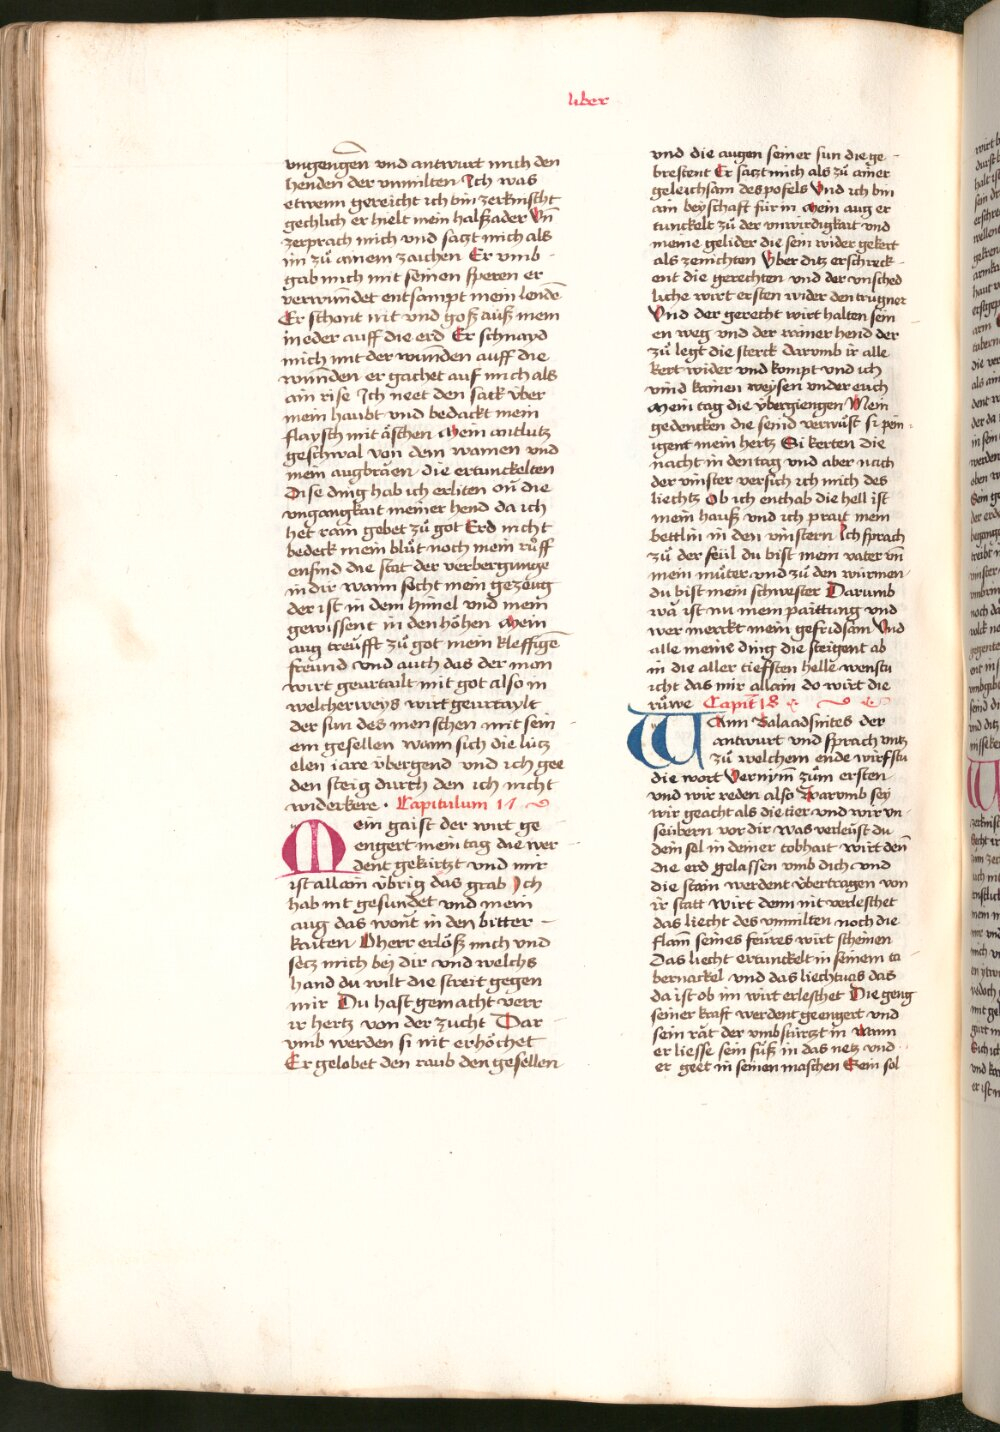 liber
vngengen̄ vnd antwurt mich den
henden der vnmilten Ich was
etwenn gereicht ich bin zerknischt
gechlich er hielt mein halßader Vn̄
zerprach mich vnd sazt mich als
im zů ainem zaichen Er vmb
gab mich mit seinen speren er
verwundet entsampt mein lende
Er schont nit vnd goß auß mein
ineder auff die erd Er schnayd
mich mit der wunden auff die
wunden er gachet auf mich als
ain rise Ich neet den sack über
mein haubt vnd bedackt mein
flaysch mit äschen Mein antlutz
geschwal von dem wainen vnd
mein augbräen die ertunckelten
Dise ding hab ich erliten on̄ die
vngangkait meiner hend da ich
het rain gebet zů got Erd nicht
bedeck mein blůt noch mein růff
enfind die stat der verbergunge
in dir wann secht mein gezeüg
der ist in dem himel vnd mein
gewissent in den höhen Mein
aug treüfft zů got mein kleffigen̄
freund vnd auch das der man
wirt geurtailt mit got also in
welcherweys wirt geurtaylt
der sun des menschen mit sein
em gesellen wann sich die lütz
elen iare übergend vnd ich gee
den steig durch den ich nicht
widerkere · Capitulum 17
Mein gaist der wirt ge
engert mein tag die wer
dent gekürtzt vnd mir
ist allain übrig das grab Ich
hab nit gesundet vnd mein
aug das wont in den bitter
kaiten O herr erlöß mich vnd
secz mich bei dir vnd welchs
hand du wilt die streit gegen
mir Du hast gemacht verr
ir hertz von der zucht Dar
vmb werden si nit erhöchet
Er gelobet den raub den gesellen
vnd die augen seiner sun die ge
brestent Er sazt mich als zů ainer
geleichsam des pofels Vnd ich bin
ain beyschaft für in Mein aug er
tunckelt zů der vnwirdigkait vnd
meine gelider die sein wider gekert
als zenichten Vber ditz erschreck
ent die gerechten vnd der vnsched
liche wirt ersten wider den trugner
Vnd der gerecht wirt halten sein
en weg vnd der rainer hend der
zů legt die sterck darumb ir alle
kert wider vnd kompt vnd ich
vind kainen weysen vnder euch
Mein tag die übergiengen Mein
gedencken die seind verwüst si pein
igent mein hertz Si kerten die
nacht in den tag vnd aber nach
der vinster versich ich mich des
liechtz Ob ich enthab die hell ist
mein hauß vnd ich prait mein
bettlin in den vinstern Ich sprach
zů der feül du bist mein vater vn̄
mein můter vnd zů den würmen
du bist mein schwester Darumb
wa ist nu mein paittung vnd
wer merckt mein gefridsam Vnd
alle meine ding die steigent ab
in die aller tieffsten helle wenstu
icht das mir allain do wirt die
růwe Capit̄ 18
Wann Baladsuites der
antwurt vnd sprach vntz
zů welchem ende wirfstu
die wort Vernym̄ zům ersten
vnd wir reden also Warumb sey
wir geacht als die tier vnd wir vn
seübern vor dir Was verleüst du
dein sel in deiner tobhait wirt den̄
die erd gelassen vmb dich vnd
die stain werdent übertragen von
ir statt Wirt denn nit verleschet
das liecht des vnmilten noch die
flam̄ seines feüres wirt scheinen
Das liecht ertunckelt in seinem ta
bernackel vnd das liechtuas das
da ist ob im wirt erleschet Die geng
seiner kraft werdent geengert vnd
sein rät der vmbstürtzt in Wann
er liesse sein fůß in das netz vnd
er geet in seinen maschen Sein sol